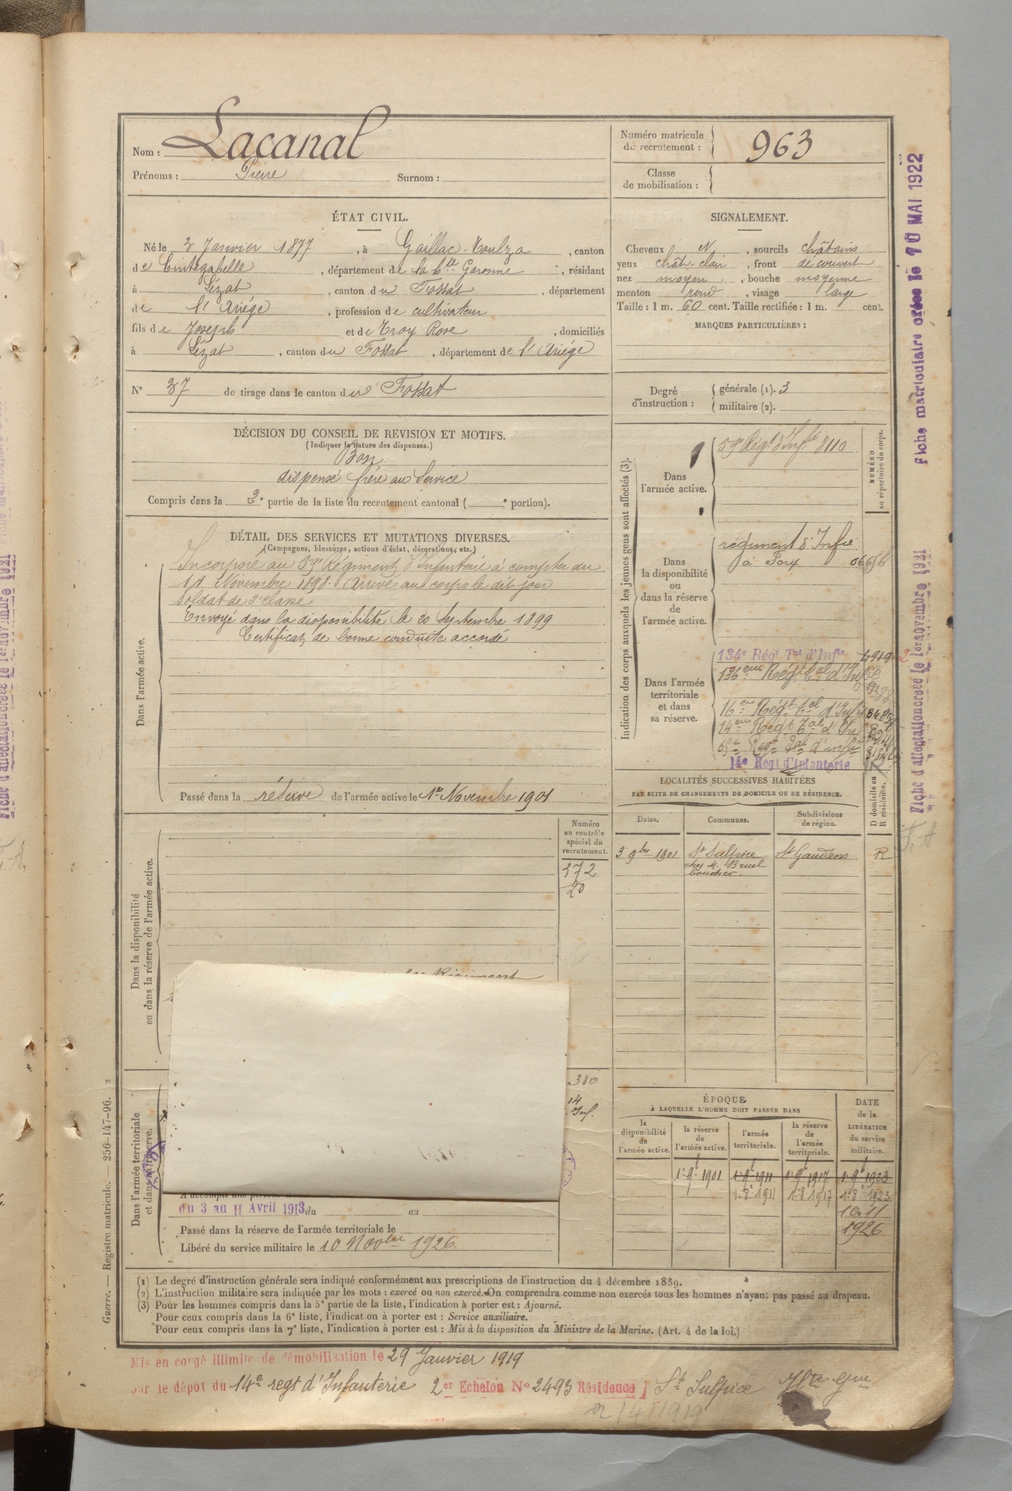 Nom : Lacanal
Prénoms : Pierre Surnom :
Numéro matricule de recrutement : 963
Classe de mobilisation :
ÉTAT CIVIL.
Né le 3 Janvier 1877, à Gaillac-Toulza, canton
de Cintegabelle, département de la hte Garonne, résidant
à Lézat, canton du Fossat, département
de l'Ariége, profession de cultivateur
fils de Joseph et de Troy Rose, domiciliés
à Lézat, canton du Fossat, département de l'Ariége
N° 37 de tirage dans le canton du Fossat
SIGNALEMENT.
Cheveux N, sourcils châtains
yeux chât clair, front découvert
nez moyen, bouche moyenne
menton rond, visage large
Taille : 1 m. 60 cent. Taille rectifiée : 1 m. cent.
MARQUES PARTICULIÈRES :
Degré d'instruction : générale (1). 3
militaire (2).
DÉCISION DU CONSEIL DE REVISION ET MOTIFS.
(Indiquer la nature des dispenses.)
Bon
dispensé frère au Service
Compris dans la 3e partie de la liste du recrutement cantonal ( e portion).
DÉTAIL DES SERVICES ET MUTATIONS DIVERSES.
(Campagnes, blessures, actions d'éclat, décorations, etc.)
Dans l'armée active.
Incorporé au 59e Régiment d'Infanterie à compter du
Novembre 1898. Arrivé au corps le dit jour
Soldat de 2e classe
Envoyé dans la disponibilité le 20 Septembre 1899
Certificat de bonne conduite accordé
Passé dans la réserve de l'armée active le 1er Novembre 1901
Indication des corps auxquels les jeunes gens sont affectés (3).
NUMÉRO au répertoire du corps.
Dans l'armée active.
59e Régt d'Infie 8110
Dans la disponibilité ou dans la réserve de l'armée active.
régiment d'Infie
à Foix
Dans l'armée territoriale et dans sa réserve.
134e Régt Tal d'Infie
136eme Regt tal d'Infie
16eme Regt tal d'Infie
14eme Regt tal d'Inf
14e Régt d'Infanterie
LOCALITÉS SUCCESSIVES HABITÉES
PAR SUITE DE CHANGEMENTS DE DOMICILE OU DE RÉSIDENCE.
D domicile ou R résidence.
Dates. Communes. Subdivisions de région.
3 9bre 1901 St Sulpice St Gaudens R
chez M. Bruel
boucher
Dans la disponibilité ou dans la réserve de l'armée active.
Numéro au contrôle spécial du recrutement.
372
20
310
14
Inf.
Dans l'armée territoriale et dans sa réserve.
du 3 au 11 Avril 1913 du au
Passé dans la réserve de l'armée territoriale le
Libéré du service militaire le 10 Novbre 1926
ÉPOQUE
À LAQUELLE L'HOMME DOIT PASSER DANS
DATE de la LIBÉRATION du service militaire.
la disponibilité de l'armée active.
la réserve de l'armée active.
l'armée territoriale.
la réserve de l'armée territoriale.
1er 9e 1901 1er 9e 1911 1er 9e 1917 1er 9e 1923
1er 8e 1911 1er 8e 1917 1er 8e 1923
10 11
1926
(1) Le degré d'instruction générale sera indiqué conformément aux prescriptions de l'instruction du 4 décembre 1889.
(2) L'instruction militaire sera indiquée par les mots : exercé ou non exercé. On comprendra comme non exercés tous les hommes n'ayant pas passé au drapeau.
(3) Pour les hommes compris dans la 5e partie de la liste, l'indication à porter est : Ajourné.
Pour ceux compris dans la 6e liste, l'indication à porter est : Service auxiliaire.
Pour ceux compris dans la 7e liste, l'indication à porter est : Mis à la disposition du Ministre de la Marine. (Art. 4 de la loi.)
Mis en congé illimité de démobilisation le 29 Janvier 1919
par le dépôt du 14e regt d'Infanterie 2er Echelon No 2493 Résidence St Sulpice Hte Gne
Guerre. — Registre matricule. — 256-147-96.
Fiche matriculaire créée le 10 MAI 1922
Fiche d'affectation créée le 1er novembre 1921